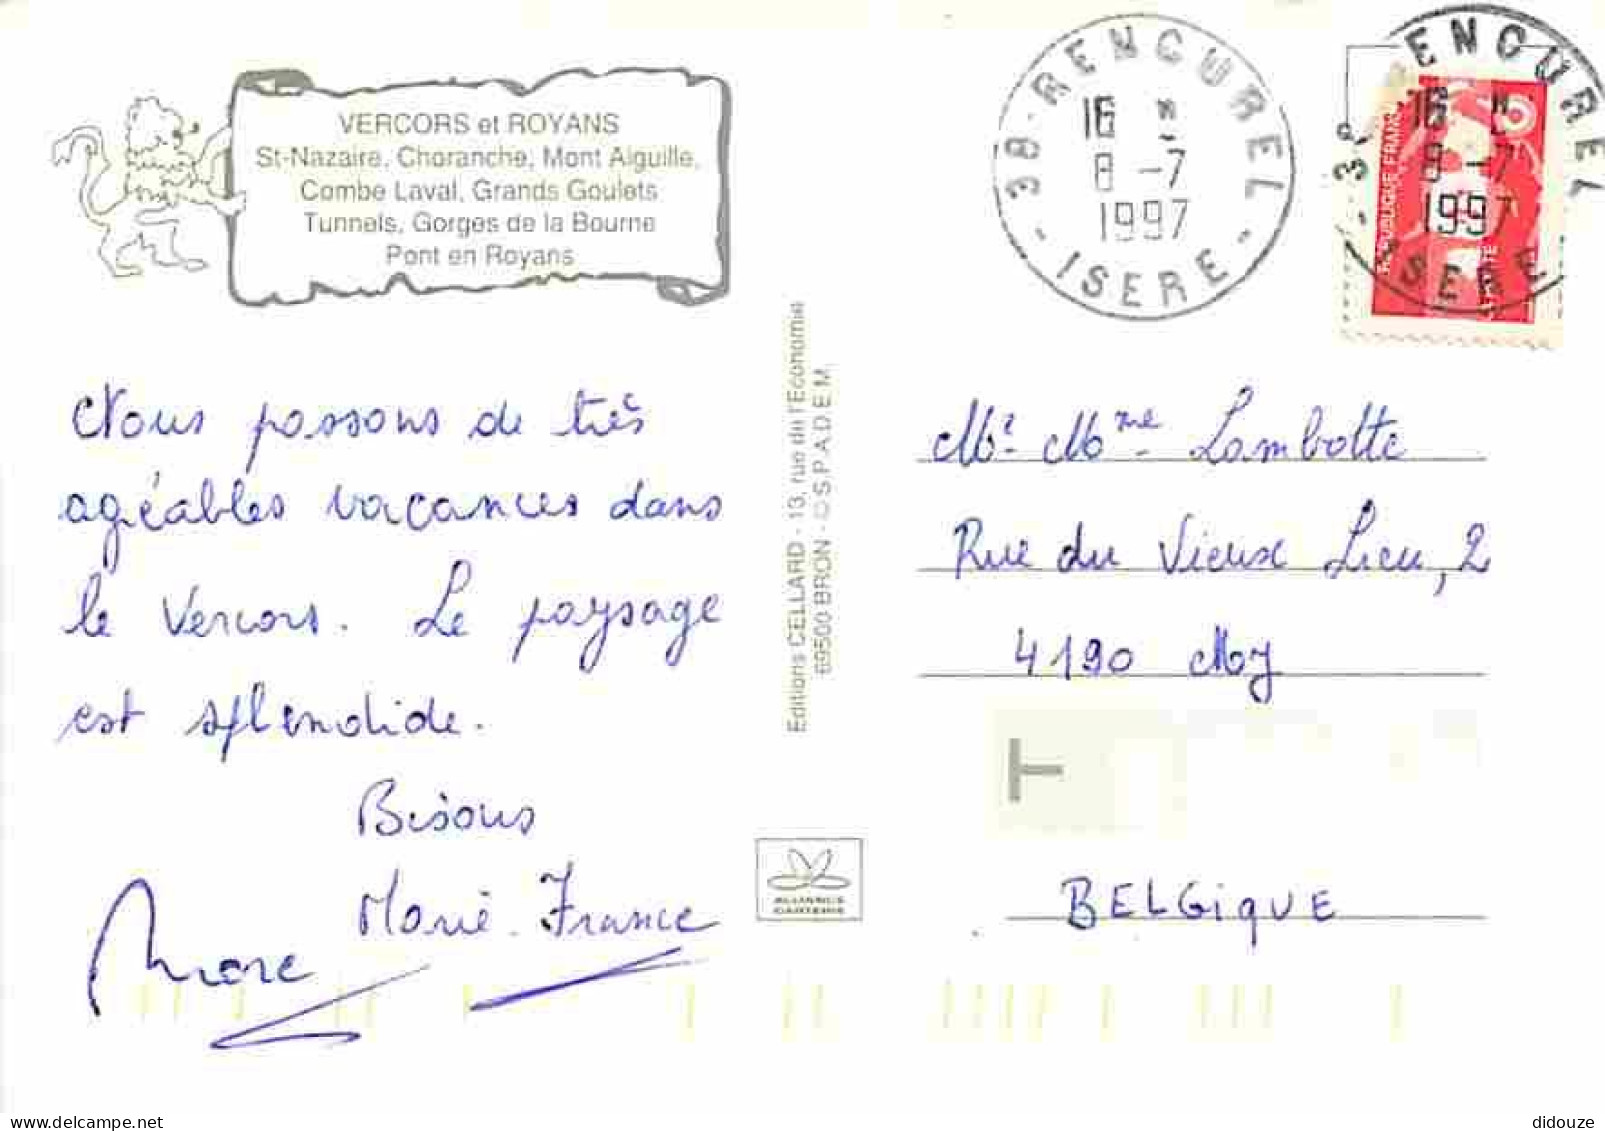 VERCORS et ROYANS
St-Nazaire, Choranche, Mont Aiguille,
Combe Laval, Grands Goulets
Tunnels, Gorges de la Bourne
Pont en Royans
38 RENCUREL
16 H
8 -7
1997
- ISERE -
ENCUREL
38
16 H
8 -7
1997
ISERE
REPUBLIQUE FRAN
Nous passons de très
agréables vacances dans
le Vercors. Le paysage
est splendide.
Bisous
Marie-France
Marc
Editions CELLARD - 13, rue du l'Economie
69500 BRON - C S.P.A.D.E.M.
ALLIANCE
CARTERIE
Mr Mme Lambotte
Rue du Vieux Lieu, 2
4190 My
T
BELGIQUE
delcampe.net
didouze